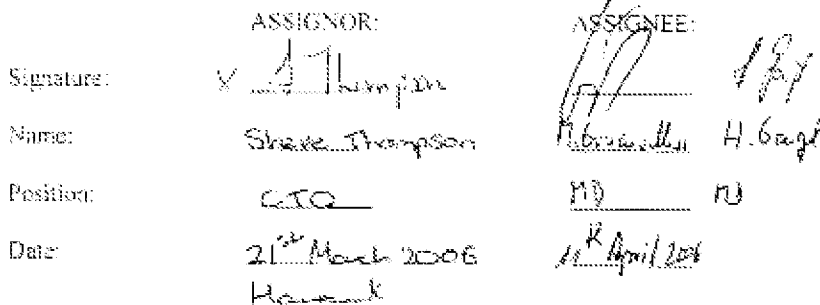 ASSIGNOR: ASSIGNEE:
Signature: X S Thompson
Name: Steve Thompson H. Gagl
Position: CTO MD MD
Date: 21st March 2006 11th April 2006